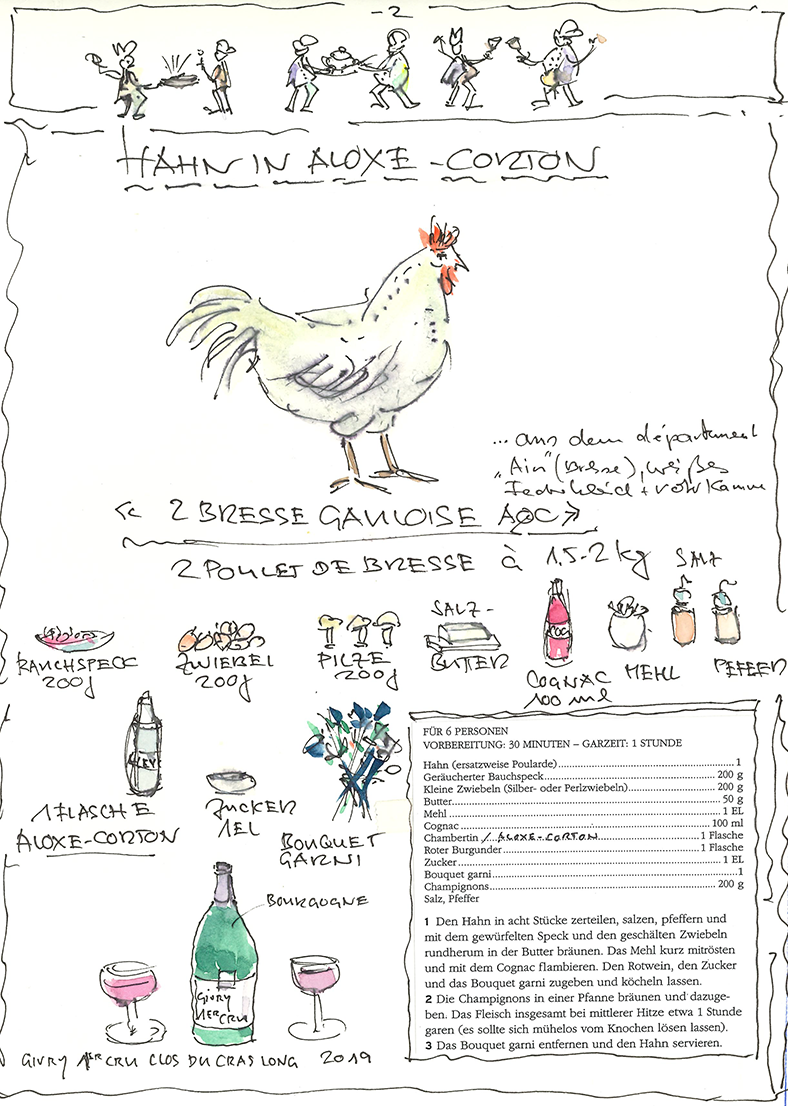 -2
HAHN IN ALOXE-CORTON
... aus dem département
„Ain“ (Bresse), weißes
Federkleid + roter Kamm
« 2 BRESSE GAULOISE AOC »
2 POULET DE BRESSE à 1.5-2 kg
SALZ
SALZ-
BUTTER
RAUCHSPECK
200g
ZWIEBEL
200g
PILZE
200g
COGNAC
100 ml
MEHL
PFEFFER
1 FLASCHE
ALOXE-CORTON
ZUCKER
1EL
BOUQUET
GARNI
FÜR 6 PERSONEN
VORBEREITUNG: 30 MINUTEN – GARZEIT: 1 STUNDE
Hahn (ersatzweise Poularde)........1
Geräucherter Bauchspeck........200 g
Kleine Zwiebeln (Silber- oder Perlzwiebeln)........200 g
Butter........50 g
Mehl........1 EL
Cognac........100 ml
Chambertin / ALOXE-CORTON........1 Flasche
Roter Burgunder........1 Flasche
Zucker........1 EL
Bouquet garni........1
Champignons........200 g
Salz, Pfeffer
1 Den Hahn in acht Stücke zerteilen, salzen, pfeffern und
mit dem gewürfelten Speck und den geschälten Zwiebeln
rundherum in der Butter bräunen. Das Mehl kurz mitrösten
und mit dem Cognac flambieren. Den Rotwein, den Zucker
und das Bouquet garni zugeben und köcheln lassen.
2 Die Champignons in einer Pfanne bräunen und dazuge-
ben. Das Fleisch insgesamt bei mittlerer Hitze etwa 1 Stunde
garen (es sollte sich mühelos vom Knochen lösen lassen).
3 Das Bouquet garni entfernen und den Hahn servieren.
BOURGOGNE
Givry
1er CRU
GIVRY 1er CRU CLOS DU CRAS LONG 2019